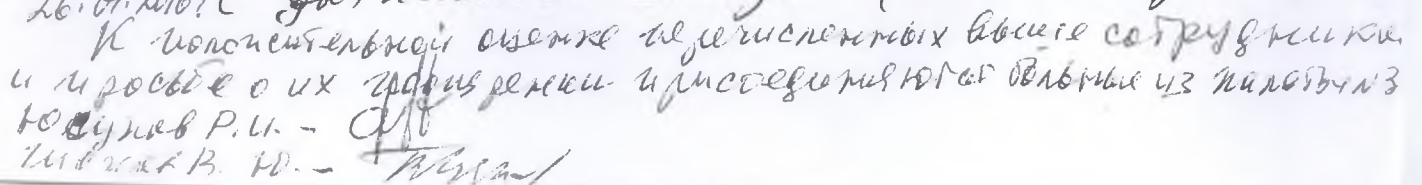 К положительной оценке перечисленных выше сотрудников
и просьбе о их поощрении присоединяются больные из палаты №3
Юсупов Р.И. -
В. Ю. -